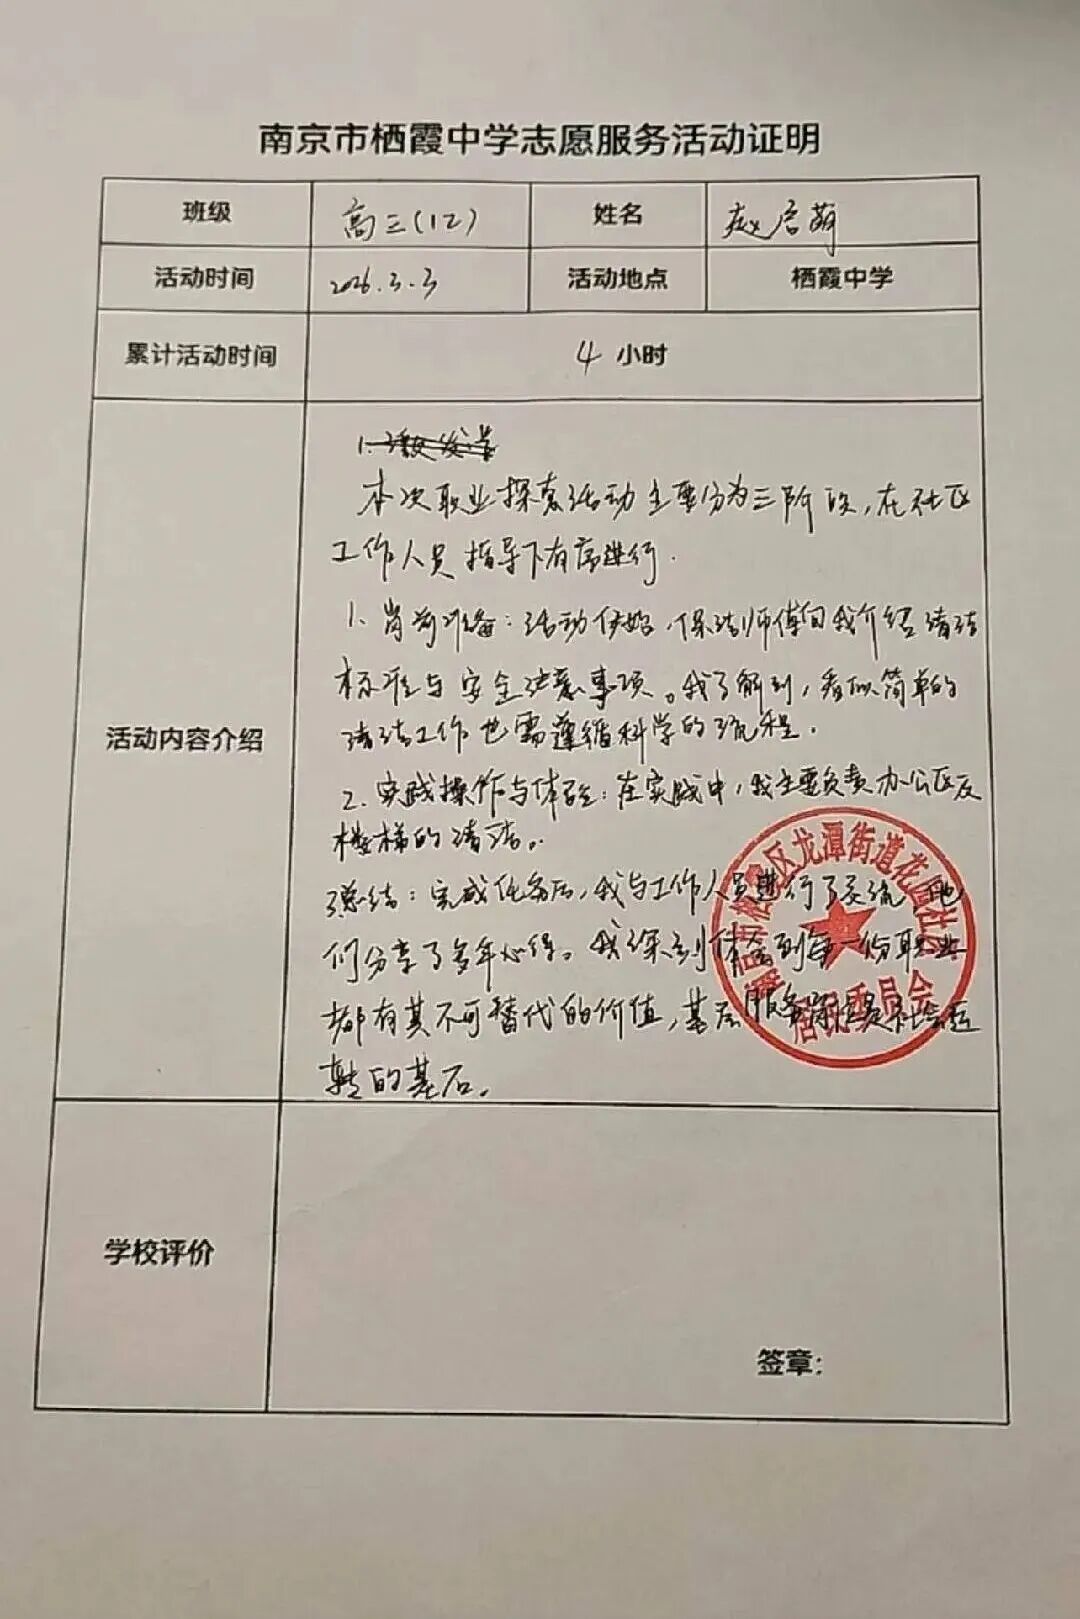 南京市栖霞中学志愿服务活动证明
班级 高三(12) 姓名 赵启萌
活动时间 2026.3.3 活动地点 栖霞中学
累计活动时间 4 小时
活动内容介绍
本次职业探索活动主要分为三阶段，在社区
工作人员指导下有序进行.
1. 岗前准备：活动伊始，保洁师傅向我介绍清洁
标准与安全注意事项。我了解到，看似简单的
清洁工作也需遵循科学的流程.
2. 实践操作与体验：在实践中，我主要负责办公区及
楼梯的清洁。
总结：完成任务后，我与工作人员进行了交流，他
们分享了多年心得。我深刻体会到每一份职业
都有其不可替代的价值，基层服务是社会运
转的基石。
栖霞区龙潭街道花园社区
居民委员会
学校评价
签章：